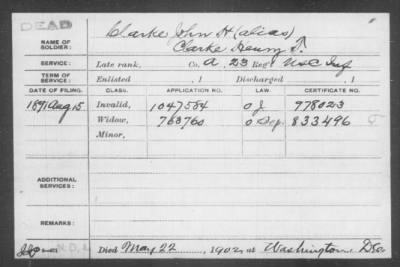 DEAD
NAME OF SOLDIER: Clarke John H (alias)
Clarke Henry T.
SERVICE: Late rank, Co. A, 23 Reg't USC Inf
TERM OF SERVICE: Enlisted , 1 Discharged , 1
DATE OF FILING. CLASS. APPLICATION NO. LAW. CERTIFICATE NO.
1891 Aug 15 Invalid, 1047584 778023
Widow, 833496
Minor,
ADDITIONAL SERVICES:
REMARKS:
Died May 22, 1902, at Washington, D.C.